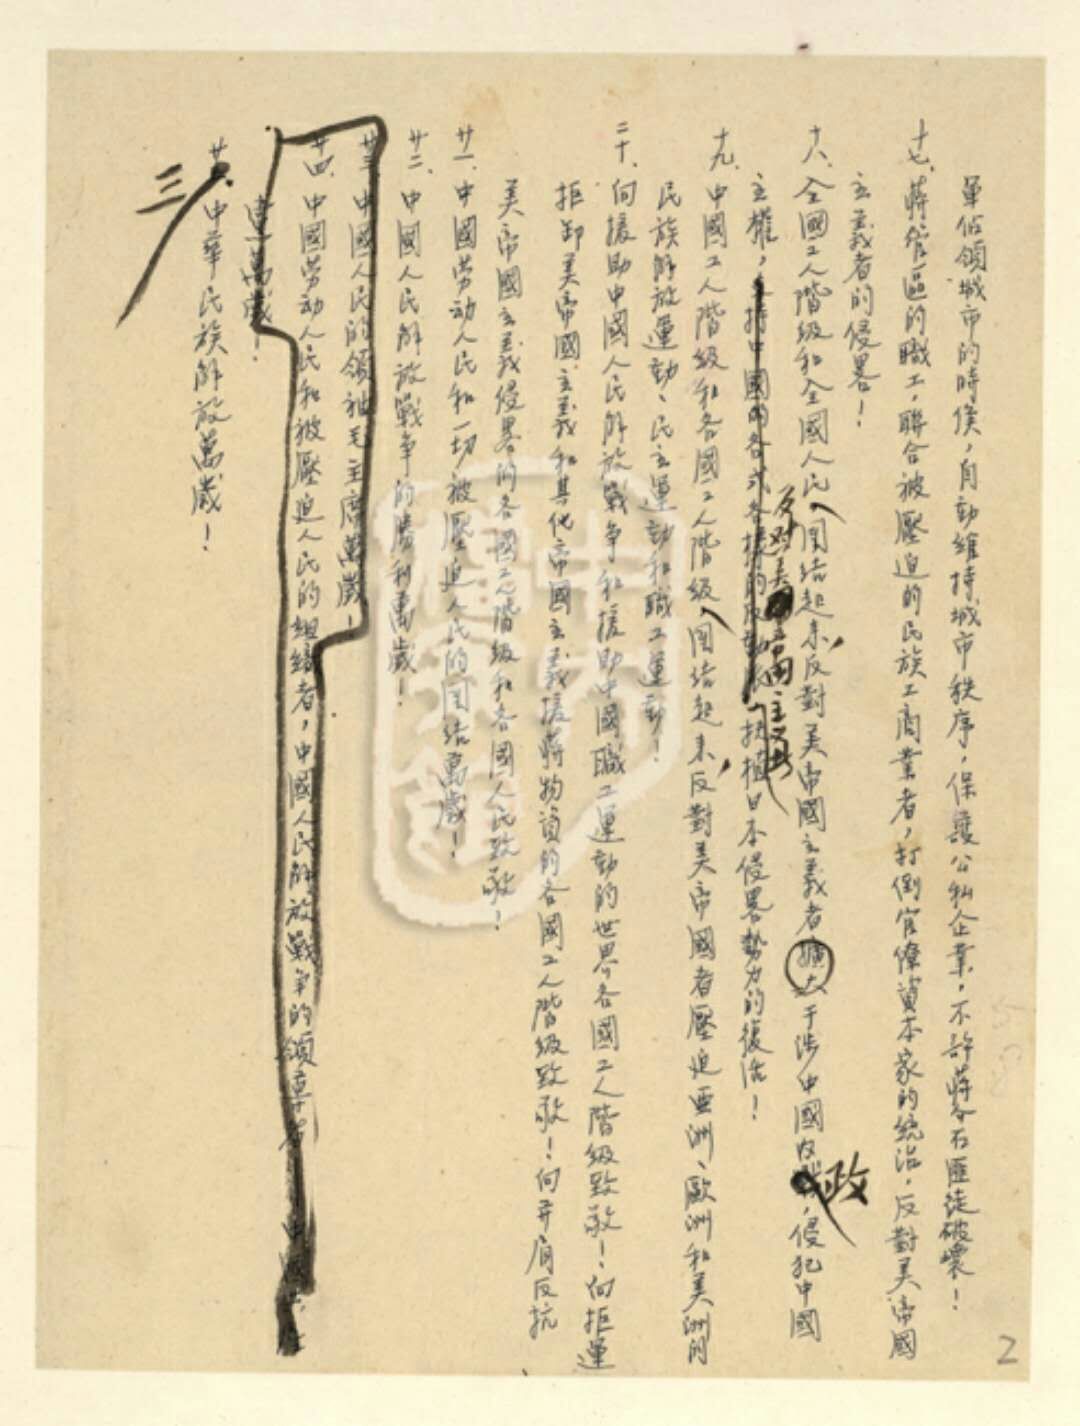 軍佔領城市的時候，自動維持城市秩序，保護公私企業，不許蔣介石匪徒破壞！
十七、蔣管區的職工，聯合被壓迫的民族工商業者，打倒官僚資本家的統治，反對美帝國
主義者的侵畧！
十八、全國工人階級和全國人民，團結起來，反對美帝國主義者擴大干涉中國內政，侵犯中國
主權，支持中國的各式各樣的反動派，扶植日本侵畧勢力的復活！
反對美帝國主义
十九、中國工人階級和各國工人階級，團結起來，反對美帝國者壓迫亚洲、歐洲和美洲的
民族解放運動、民主運動和職工運動！
二十、向援助中國人民解放戰争和援助中國職工運動的世界各國工人階級致敬！向拒運
拒卸美帝國主義和其他帝國主義援蔣物資的各國工人階級致敬！向并肩反抗
美帝國主義侵畧的各國工人階級和各國人民致敬！
廿一、中國劳动人民和一切被壓迫人民的团结萬歲！
廿二、中國人民解放戰争的勝利萬歲！
廿三、中國人民的領袖毛主席萬歲！
廿四、中國劳动人民和被壓迫人民的組織者，中國人民解放戰争的領導者 中國共產
達萬歲！
三
中華民族解放萬歲！
2